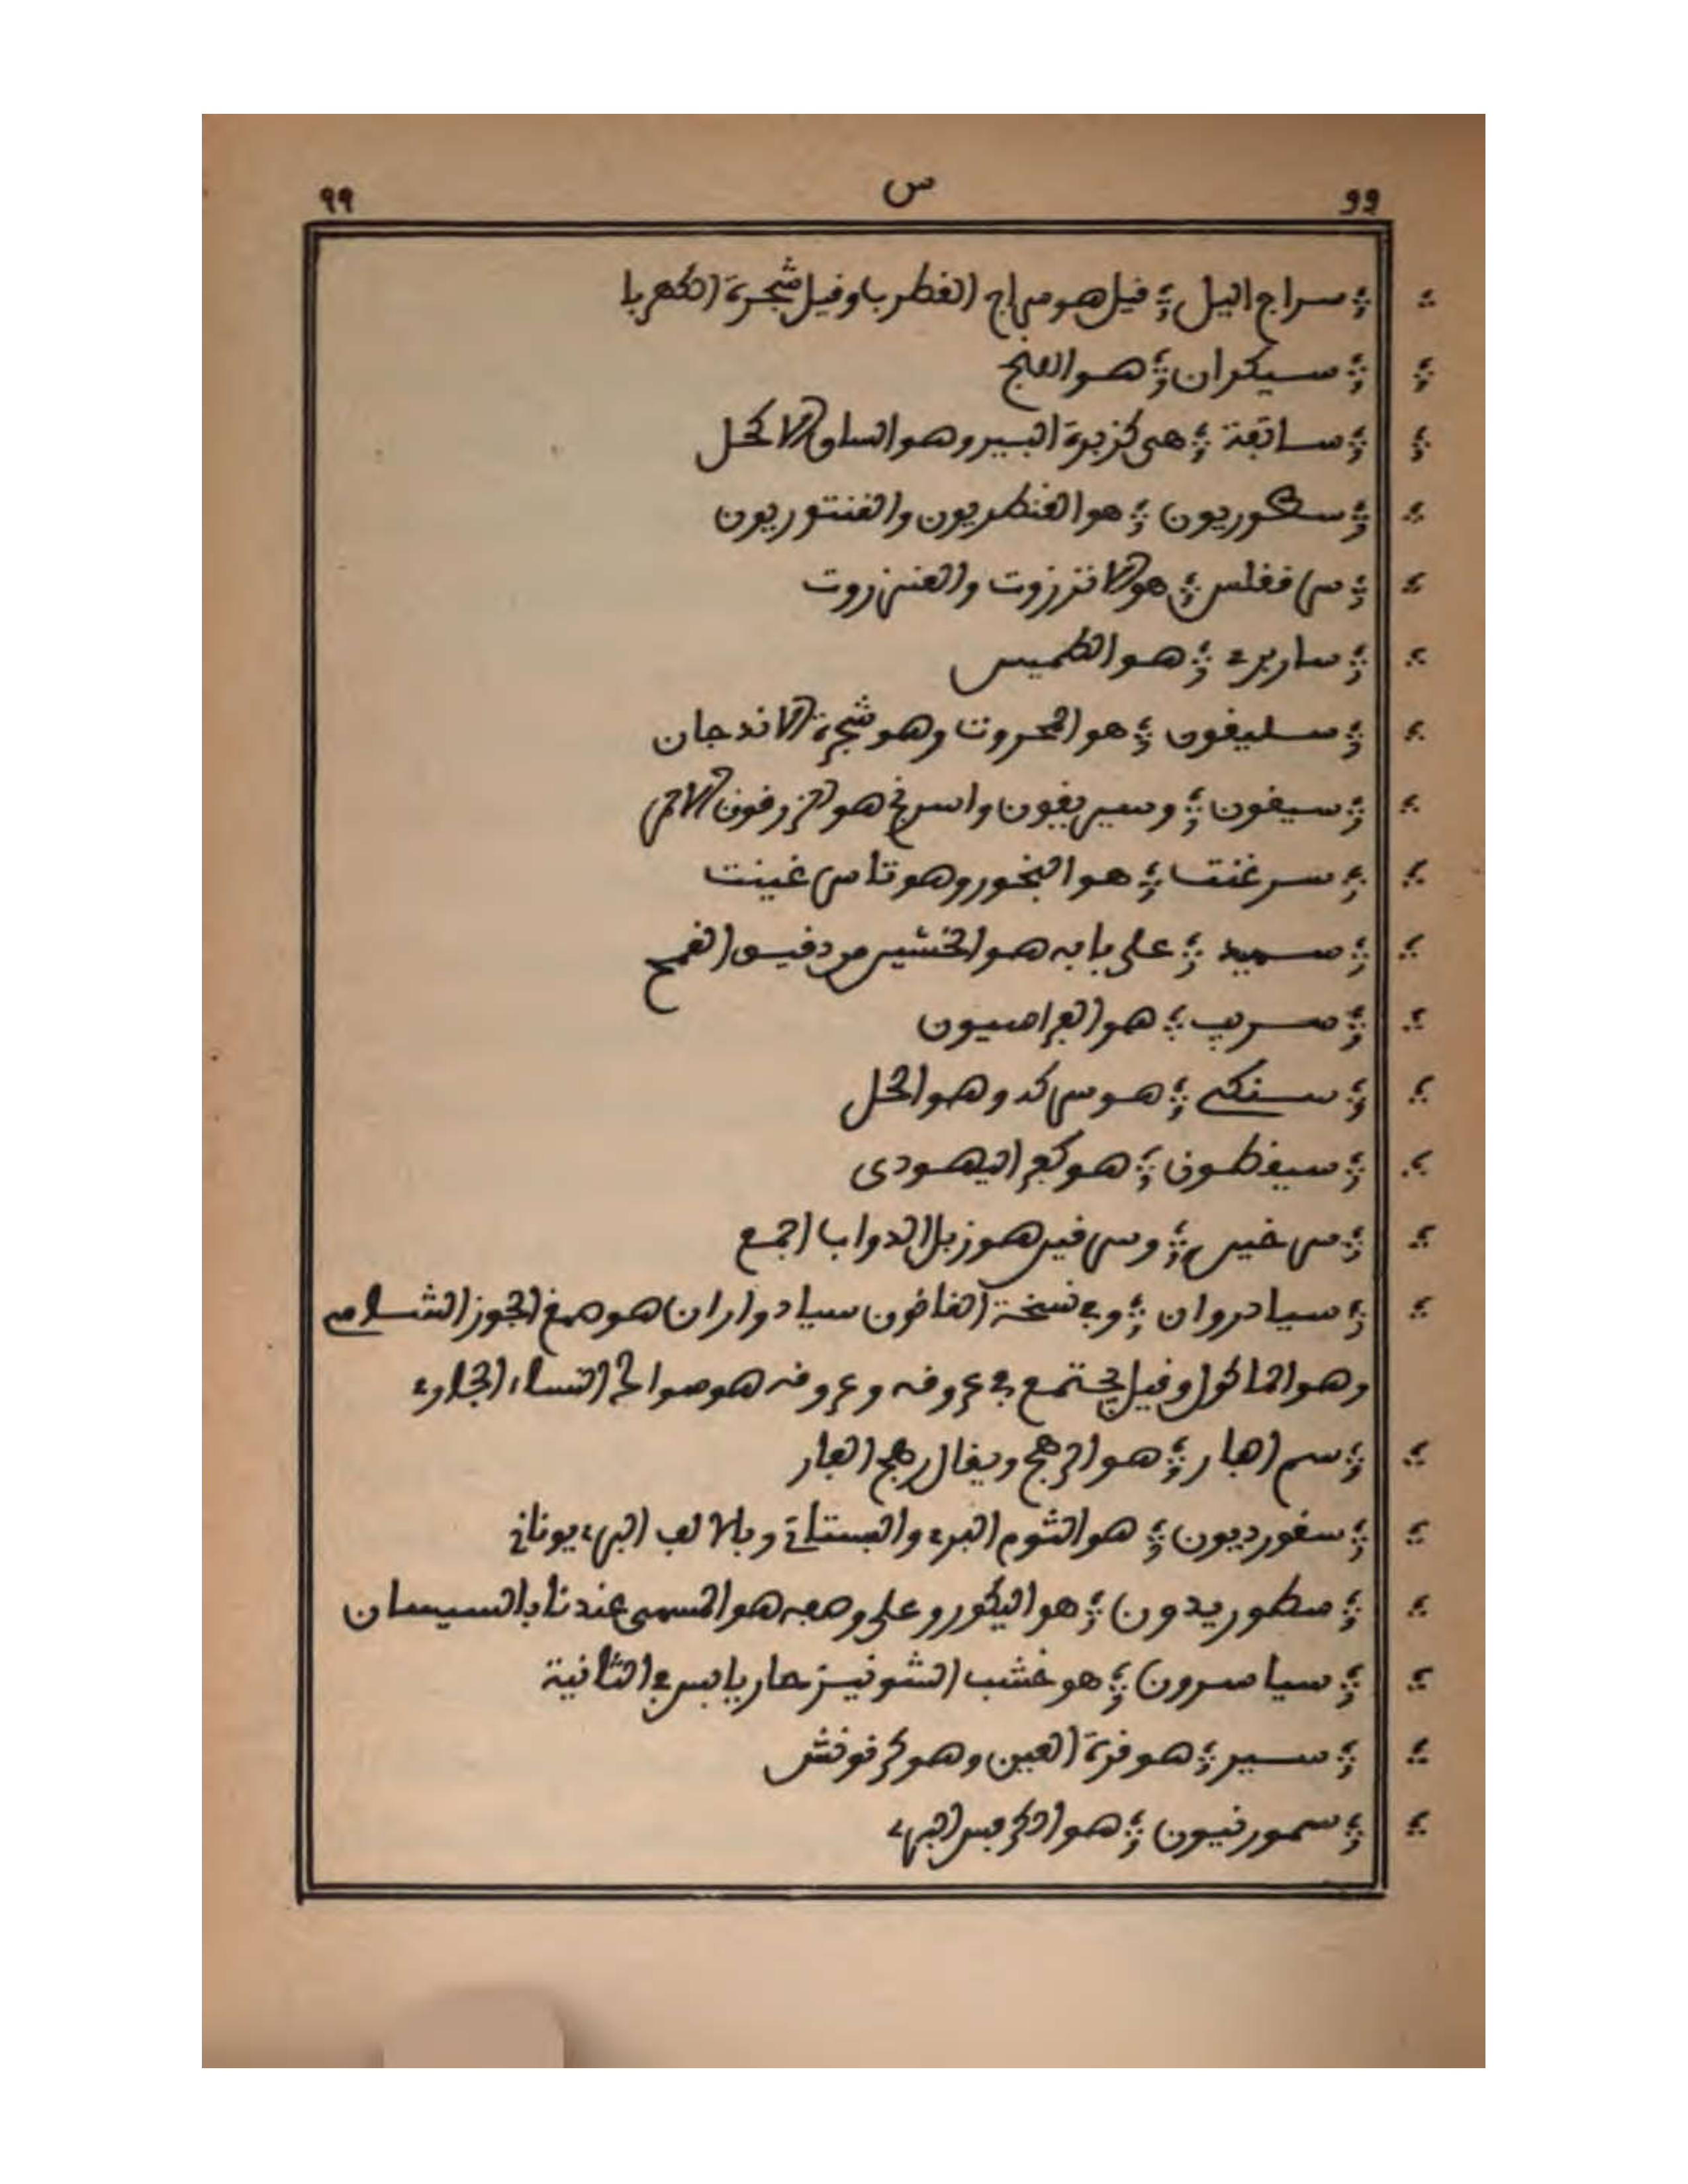 99 س ٩٩
سراج اليل ؛ قيل هو سراج القطربا وقيل شجرة الكهربا
سيكران ؛ هو البنج
سانقة ؛ هى كزبرة البير وهو الساق الاكحل
سكوريون ؛ هو القنطريون والقنتوريون
هو الانزروت والعنزروت
ساربرے ؛ هو الطميس
سليقون ؛ هو المحروت وهو شجرة الاندجان
سيقون ؛ وسيريقون واسرنج هو الزرقون الاحمر
سرغنت ؛ هو البخور وهو تاسرغينت
سميد ؛ على بابه هو الخشين من دقيق القمح
سرب ؛ هو الفراسيون
سنكى ؛ هو سركه وهو الخل
سيفطون ؛ هو كفر اليهودى
سرغين ؛ وسرقين هو زبل الدواب اجمع
سيادروان ؛ وفى نسخة القانون سيادواران هو صمغ الجوز الشامى
وهو الماكول وقيل يجتمع فى عروقه وعروقه هو سوالح النساء الجلاوى
سم اهبار ؛ هو الرهج ويقال رهج الفار
سقورديون ؛ هو الثوم البرى والبستانى وبالالف البرى يونانى
سطوريدون ؛ هو اليكورو على وصفه هو المسمى عندنا بالسيسان
سياسرون ؛ هو خشب الشونيز حار يابس فى الثانية
سير ؛ هو قرة العين وهو كرفونش
سمورنيون ؛ هو الكرفس البرى